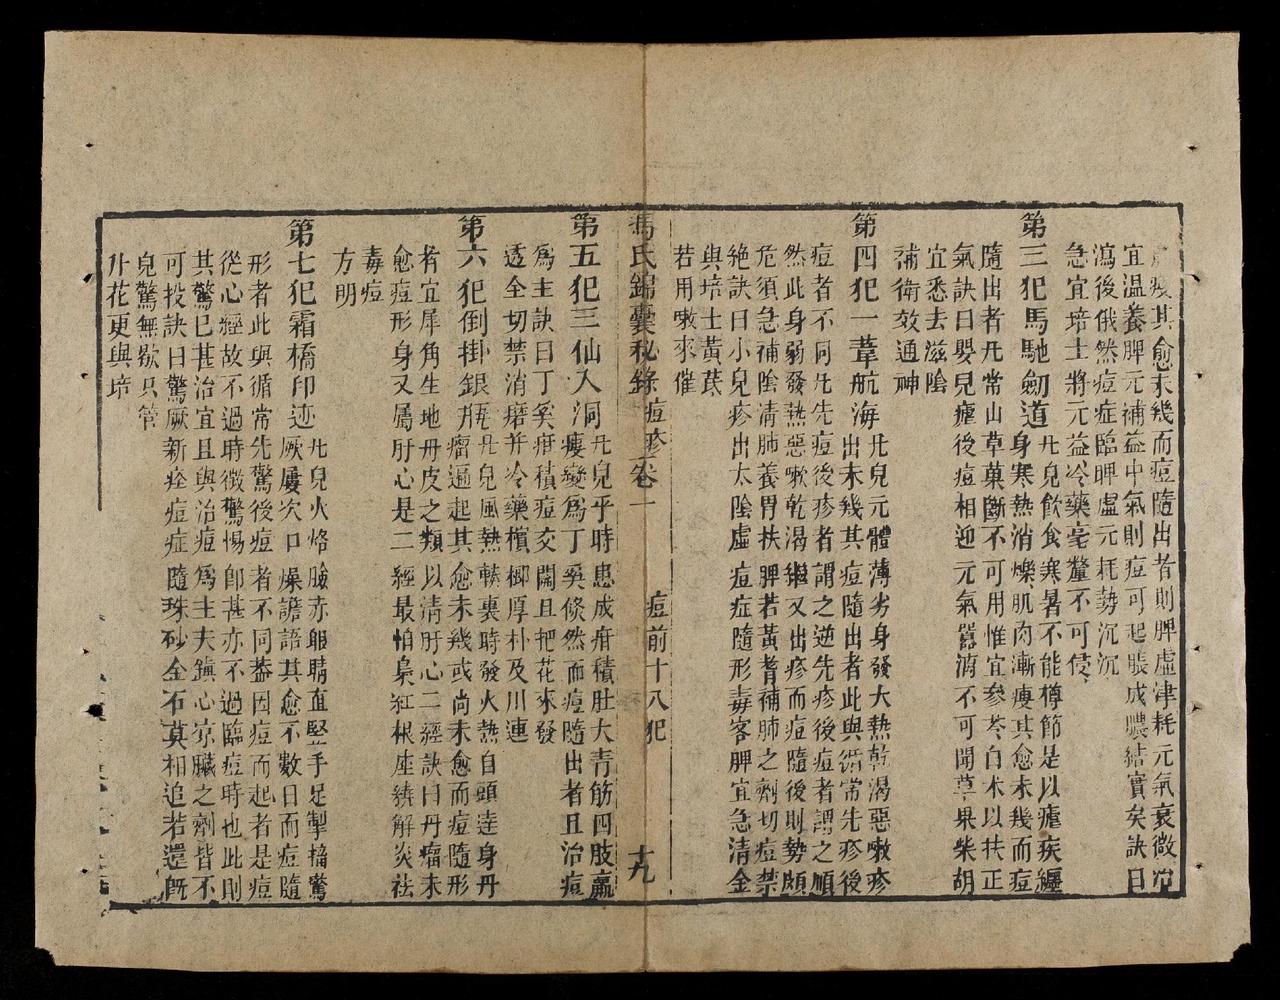 瘦其愈未幾而痘隨出者則脾虛津耗元氣衰微
宜溫養脾元補益中氣則痘可起脹成膿結實矣訣曰
瀉後俄然痘症臨脾虛元耗勢沉沉
急宜培土將元益冷藥毫釐不可侵
第三犯馬馳劒道凡兒飲食寒暑不能樽節是以瘧疾纒
身寒熱消爍肌肉漸瘦其愈未幾而痘
隨出者凡常山草菓斷不可用惟宜參苓白朮以扶正
氣訣曰嬰兒瘧後痘相迎元氣囂漓不可聞草果柴胡
宜悉去滋陰
補衛效通神
第四犯一葦航海凡兒元體薄劣身發大熱乾渴惡嗽疹
出未幾其痘隨出者此與循常先疹後
痘者不同凡先痘後疹者謂之逆先疹後痘者謂之順
然此身弱發熱惡嗽乾渴繼又出疹而痘隨後則勢頗
危須急補陰清肺養胃扶脾若黃蓍補肺之劑切痘禁
絕訣曰小兒疹出太陰虛痘症隨形毒客脾宜急清金
與培土黃芪
若用嗽來催
馮氏錦囊秘錄痘疹卷一 痘前十八犯 十九
第五犯三仙入洞凡兒乎時患成疳積肚大青筋四肢羸
瘦變爲丁奚倏然而痘隨出者且治痘
爲主訣曰丁奚疳積痘交關且把花來發
透全切禁消磨并冷藥檳榔厚朴及川連
第六犯倒掛銀瓶凡兒風熱軼裏時發火熱自頭達身丹
瘤遍起其愈未幾或尚未愈而痘隨形
者宜犀角生地丹皮之類以清肝心二經訣曰丹瘤未
愈痘形身又屬肝心是二經最怕梟紅根座綉解炎祛
毒痘
方明
第七犯霜橋印迹凡兒火烙臉赤眼睛直堅手足掣搐驚
厥屢次口燥譫語其愈不數日而痘隨
形者此與循常先驚後痘者不同葢因痘而起者是痘
從心經故不過時微驚惕卽甚亦不過臨痘時也此則
其驚已甚治宜且與治痘爲主夫鎮心凉臟之劑皆不
可投訣曰驚厥新痊痘症隨珠砂金石莫相追若還旣
兒驚無歇只管
升花更與培